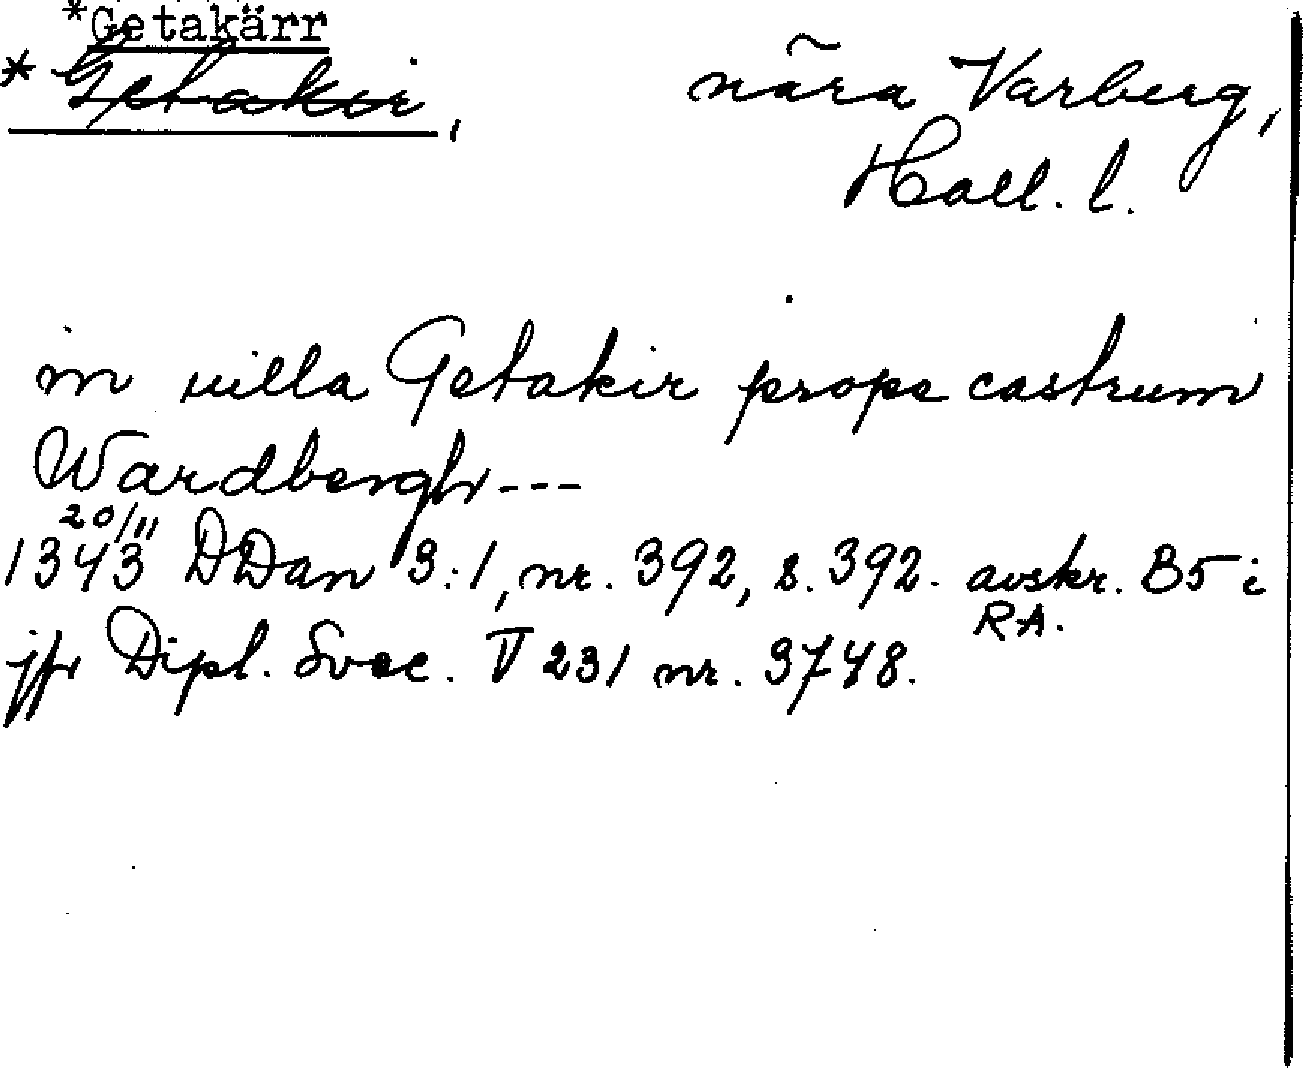 *Getakärr
* Getakir, nära Varberg,
Hall. l.
in uilla Getakir prope castrum
Wardbergh ---
20/11
1343 DDan 3:1, nr. 392, s. 392. avskr. B5 i
RA.
jfr Dipl. Svec. V 231 nr. 3748.